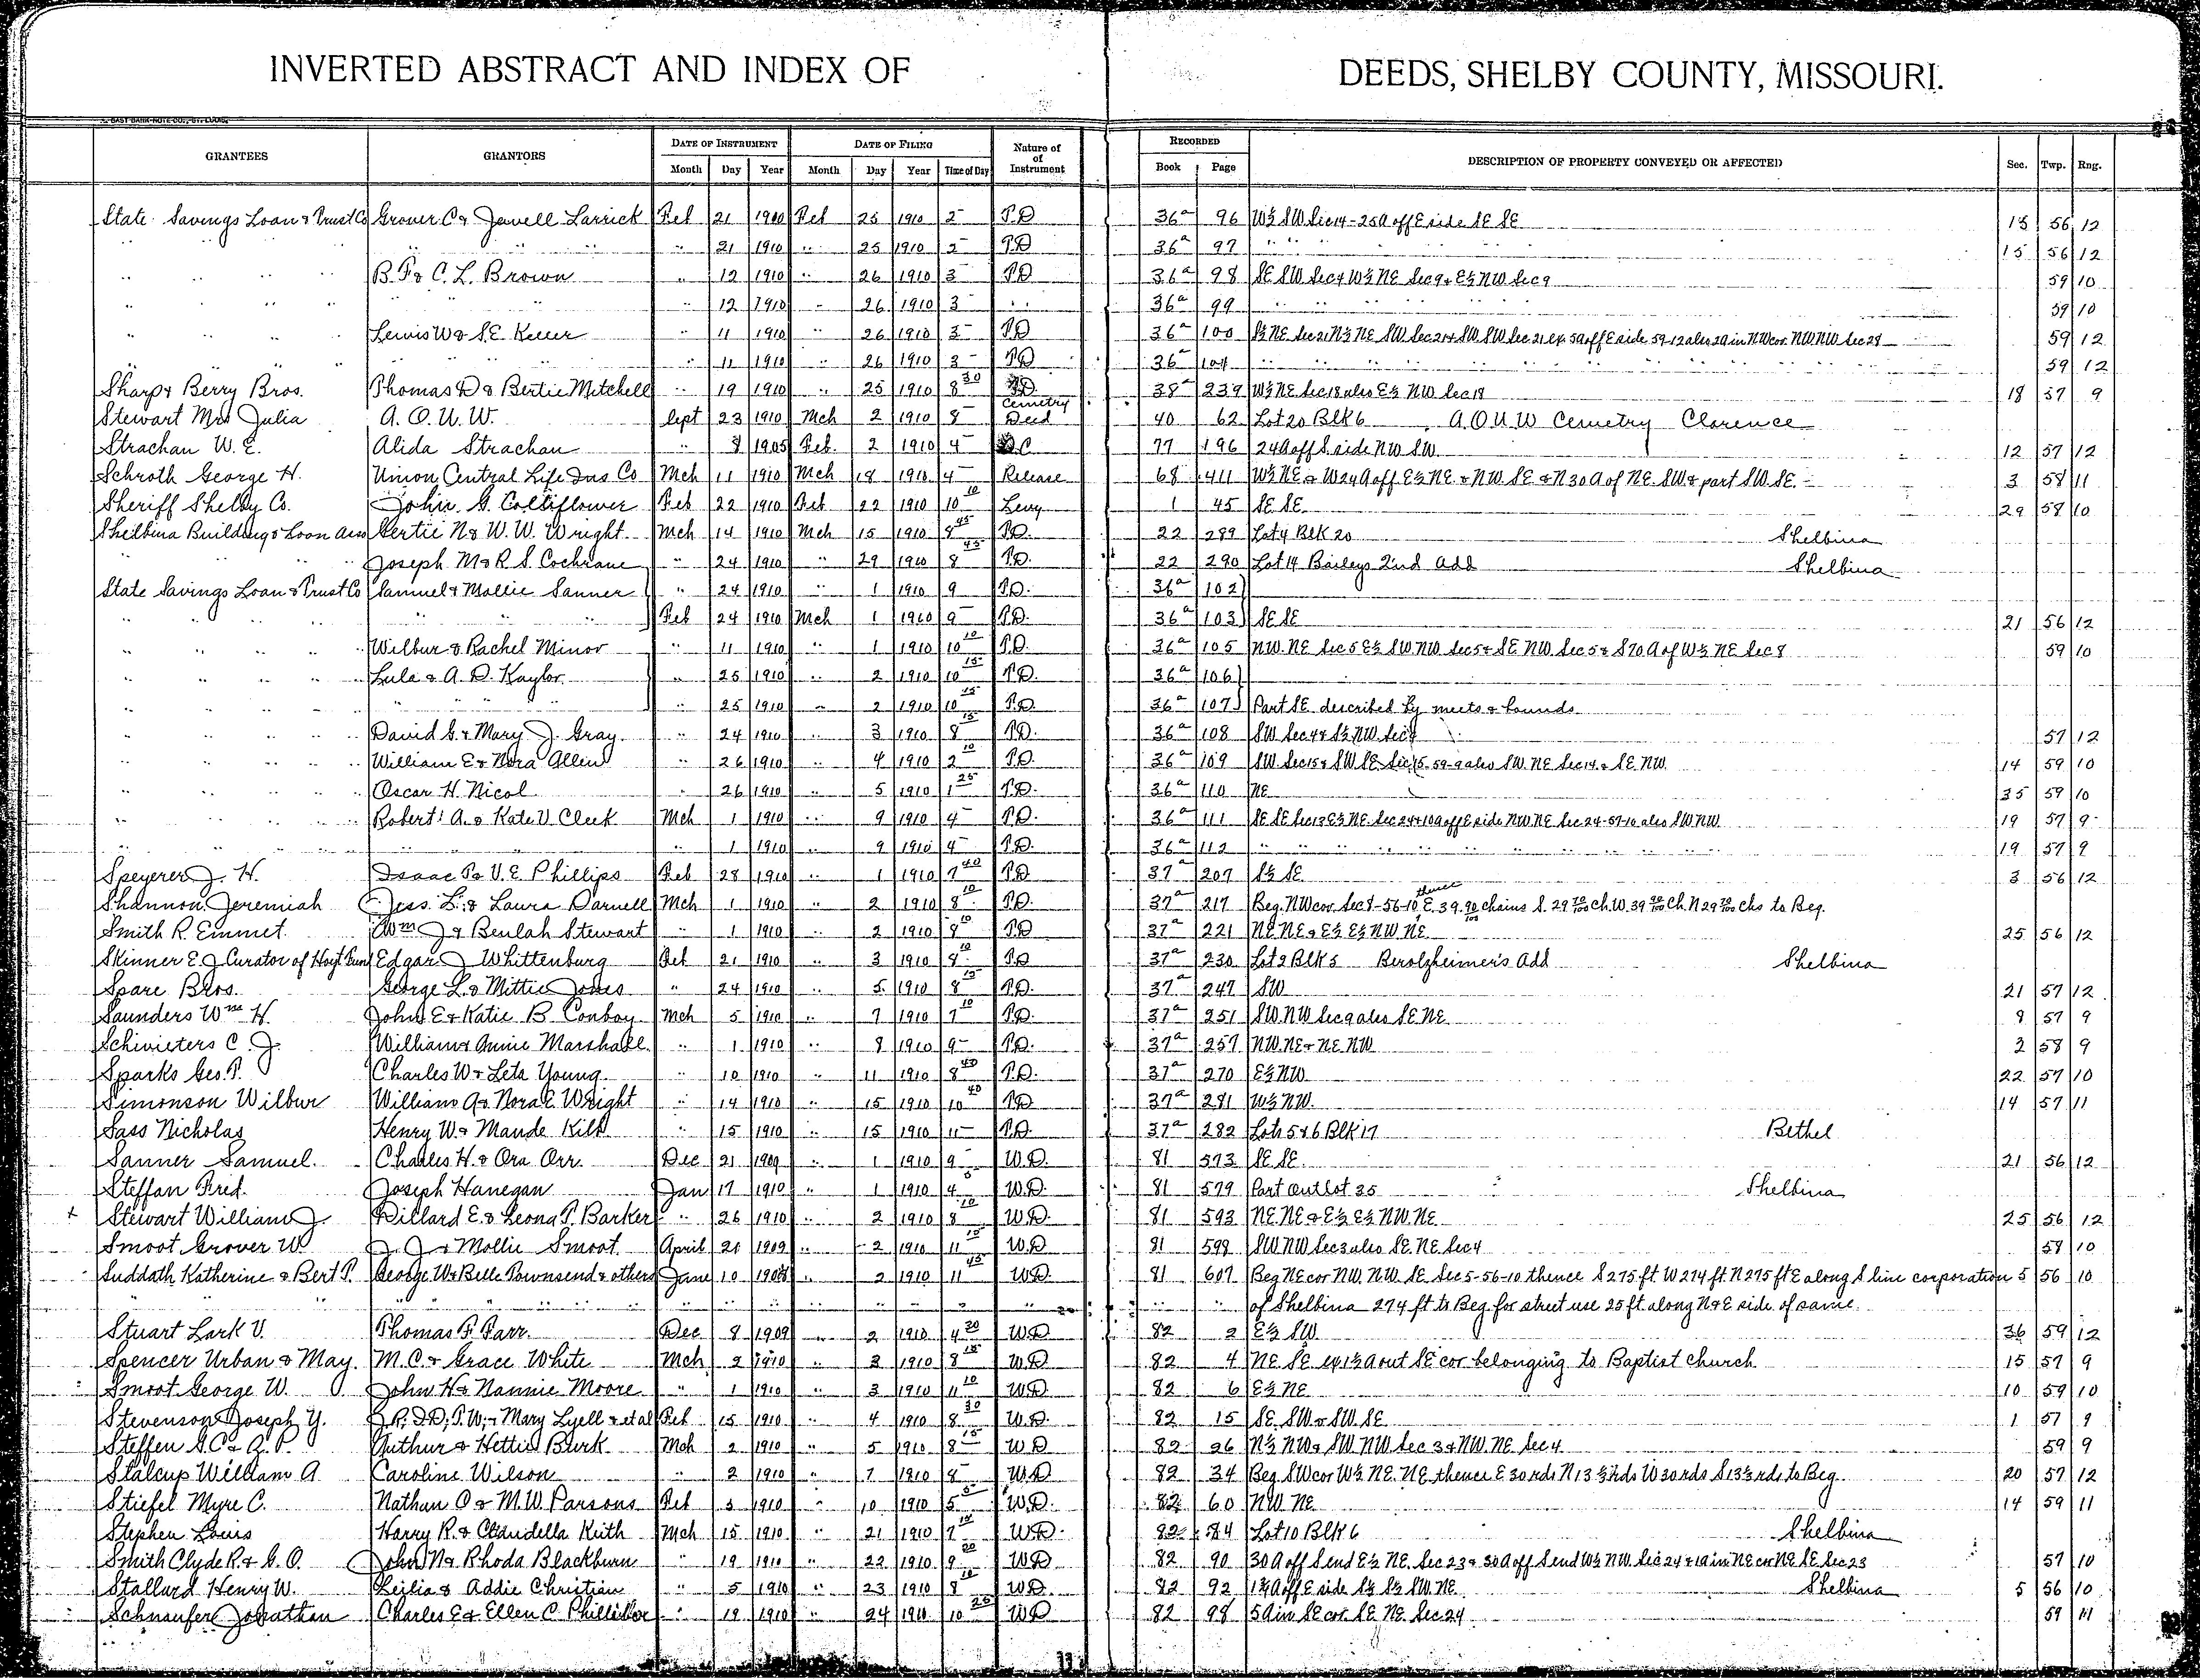 INVERTED ABSTRACT AND INDEX OF DEEDS, SHELBY COUNTY, MISSOURI.
GRANTEES GRANTORS DATE OF INSTRUMENT DATE OF FILING Nature of of Instrument RECORDED DESCRIPTION OF PROPERTY CONVEYED OR AFFECTED Sec. Twp. Rng.
Month Day Year Month Day Year Time of Day Book Page
State Savings Loan & Trust Co Grover C & Jewell Larrick Feb 21 1910 Feb 25 1910 2 T.D 36a 96 W½ SW Sec 14 - 25A off E side SE SE 15 56 12
" " " " " " 21 1910 " 25 1910 2 T.D 36a 97 " " 15 56 12
" " " B.F & C.L. Brown " 12 1910 " 26 1910 3 T.D 36a 98 SE SW Sec 4 W½ NE Sec 9 & E½ NW Sec 9 59 10
" " " " " 12 1910 " 26 1910 3 " 36a 99 " " " 59 10
" " " Lewis W & S.E. Keller " 11 1910 " 26 1910 3 T.D 36a 100 59 12
" " " " " 11 1910 " 26 1910 3 T.D 36a 101 " " " 59 12
Sharp & Berry Bros. Thomas D & Bertie Mitchell " 19 1910 " 25 1910 8 30 T.D. 38a 239 W½ NE Sec 18 also E½ NW Sec 18 18 57 9
Stewart Mrs Julia A.O.U.W. Sept 23 1910 Mch 2 1910 8 Cemetry Deed 40 62 Lot 20 Blk 6 A.O.U.W Cemetry Clarence
Strachan W.E. Alida Strachan " 8 1905 Feb. 2 1910 4 77 196 24A off S side NW SW 12 57 12
Schroth George H. Union Central Life Ins Co Mch 11 1910 Mch 18 1910 4 Release 68 411 W½ NE & W24A off E½ NE & NW SE & N30A of NE SW & part SW SE 3 58 11
Sheriff Shelby Co. John G. Coldiflower Feb 22 1910 Feb 22 1910 10 10 Levy 1 45 SE SE 29 58 10
Shelbina Building & Loan Assn Gertie N & W.W. Wright Mch 14 1910 Mch 15 1910 8 45 T.D. 22 289 Lot 4 Blk 20 Shelbina
" " Joseph M & R.S. Cochrane " 24 1910 " 29 1910 8 45 T.D. 22 290 Lot 14 Baileys 2nd Add Shelbina
State Savings Loan & Trust Co Samuel & Mollie Sanner " 24 1910 " 1 1910 9 T.D. 36a 102
" " " " Feb 24 1910 Mch 1 1910 9 T.D. 36a 103 SE SE 21 56 12
" " " Wilbur & Rachel Minor " 11 1910 " 1 1910 10 10 T.D. 36a 105 NW NE Sec 5 E½ SW NW Sec 5 & SE NW Sec 5 & S70A of W½ NE Sec 8 59 10
" " " Lula & A.D. Kaylor " 25 1910 " 2 1910 10 15 T.D. 36a 106
" " " " " 25 1910 " 2 1910 10 15 T.D. 36a 107 Part SE described by meets & bounds
" " " David G. & Mary J. Gray " 24 1910 " 3 1910 8 15 T.D. 36a 108 SW Sec 4 & S½ NW Sec 4 57 12
" " " William E & Nora Allen " 26 1910 " 4 1910 2 10 T.D. 36a 109 SW Sec 15 & SW SE Sec 15 59-9 also SW NE Sec 14 & SE NW 14 59 10
" " " Oscar H. Nicol " 26 1910 " 5 1910 1 25 T.D. 36a 110 NE 35 59 10
" " " Robert A. & Kate V. Cleek Mch 1 1910 " 9 1910 4 T.D. 36a 111 SE SE Sec 13 E½ NE Sec 24 & 10A off E side NW NE Sec 24-57-10 also SW NW 19 57 9
" " " " " 1 1910 " 9 1910 4 T.D. 36a 112 " " " 19 57 9
Speyerer J.H. Isaac P & V.E. Phillips Feb 28 1910 " 1 1910 9 40 T.D 37a 207 S½ SE 3 56 12
Shannon Jeremiah Jess. L. & Laura Darnell Mch 1 1910 " 2 1910 8 10 T.D. 37a 217 Beg. NW cor Sec 8-56-10 thence E. 39 90/100 chains S. 29 70/100 ch. W 39 90/100 Ch. N 29 70/100 chs to Beg.
Smith R. Emmet Wm J & Beulah Stewart " 1 1910 " 2 1910 8 10 T.D 37a 221 NE NE & E½ E½ NW NE 25 56 12
Skinner E.J Curator of Hoyt Fund Edgar J Whittenburg Feb 21 1910 " 3 1910 8 10 T.D 37a 230 Lot 2 Blk 5 Berolzheimer's Add Shelbina
Spare Bros. George L. & Mittie Jones " 24 1910 " 5 1910 8 15 T.D. 37a 247 SW 21 57 12
Saunders Wm H. John E & Katie B. Conboy Mch 5 1910 " 7 1910 9 10 T.D. 37a 251 SW NW Sec 9 also SE NE 8 57 9
Schivieters C.J. William & Annie Marshall " 1 1910 " 8 1910 9 T.D. 37a 257 NW NE & NE NW 2 58 9
Sparks Geo. P. Charles W & Leta Young " 10 1910 " 11 1910 8 40 T.D. 37a 270 E½ NW 22 57 10
Simonson Wilbur William A & Nora E. Wright " 14 1910 " 15 1910 10 40 T.D 37a 281 W½ NW. 14 57 11
Sass Nicholas Henry W & Maude Kilb " 15 1910 " 15 1910 11 T.D. 37a 282 Lots 5 & 6 Blk 17 Bethel
Sanner Samuel. Charles H. & Ora Orr. Dec 21 1909 " 1 1910 9 W.D. 81 573 SE SE. 21 56 12
Steffan Fred. Joseph Hanegan Jan 17 1910 " 1 1910 4 5 W.D. 81 579 Part Outlot 35 Shelbina
x Stewart William J. Dillard E. & Leona P. Barker " 26 1910 " 2 1910 8 10 W.D. 81 593 NE NE & E½ E½ NW NE 25 56 12
Smoot Grover W. J.J & Mollie Smoot April 21 1909 " 2 1910 11 15 W.D 81 599 SW NW Sec 3 also SE NE Sec 4 58 10
Suddath Katherine & Bert P. George W & Belle Townsend & others June 10 1908 " 2 1910 11 45 W.D. 81 607 Beg NE cor NW NW SE Sec 5-56-10 thence S 275 ft W 274 ft N 275 ft E along S line corporation 5 56 10
" " " " " " " " " " " " of Shelbina 274 ft to Beg for street use 25 ft. along N & E side of same.
Stuart Lark V. Thomas F. Farr. Dec 8 1909 " 2 1910 4 30 W.D 82 2 E½ SW. 36 59 12
Spencer Urban & May. M.C. & Grace White Mch 2 1910 " 3 1910 8 15 W.D 82 4 NE SE ex 1½A out SE cor belonging to Baptist Church 15 57 9
Smoot George W. John H & Nannie Moore " 1 1910 " 3 1910 11 10 W.D 82 6 E½ NE 10 59 10
Stevenson Joseph Y. J.R; I.D; P.W; & Mary Lyell & et al Feb 15 1910 " 4 1910 8 30 W.D. 82 15 SE SW & SW SE 1 57 9
Steffen G.C & A.P. Arthur & Hettie Burk Mch 2 1910 " 5 1910 8 15 W.D 82 26 N½ NW & SW NW Sec 3 & NW NE Sec 4 59 9
Stalcup William A Caroline Wilson " 2 1910 " 7 1910 8 W.D 82 34 Beg SW cor W½ NE NE thence E 30 rds N 13⅓ rds W 30 rds S 13⅓ rds to Beg. 20 57 12
Stiefel Myre C. Nathan O & M.W Parsons Feb 3 1910 " 10 1910 5 5 W.D. 82 60 NW NE 14 59 11
Stephen Louis Harry R. & Claudella Keith Mch 15 1910 " 21 1910 9 10 W.D. 82 84 Lot 10 Blk 6 Shelbina
Smith Clyde R. & G.O. John N & Rhoda Blackburn " 19 1910 " 22 1910 9 20 W.D 82 90 30A off S end E½ NE Sec 23 & 30A off S end W½ NW Sec 24 & 1A in NE cor NE SE Sec 23 57 10
Stallard Henry W. Leilia & Addie Christian " 5 1910 " 23 1910 8 10 W.D 82 92 off E side S½ S½ SW NE Shelbina 5 56 10
Schnaufer Jonathan Charles E & Ellen C. " 19 1910 " 24 1910 10 25 W.D 82 98 5A in SE cor SE NE Sec 24 59 11